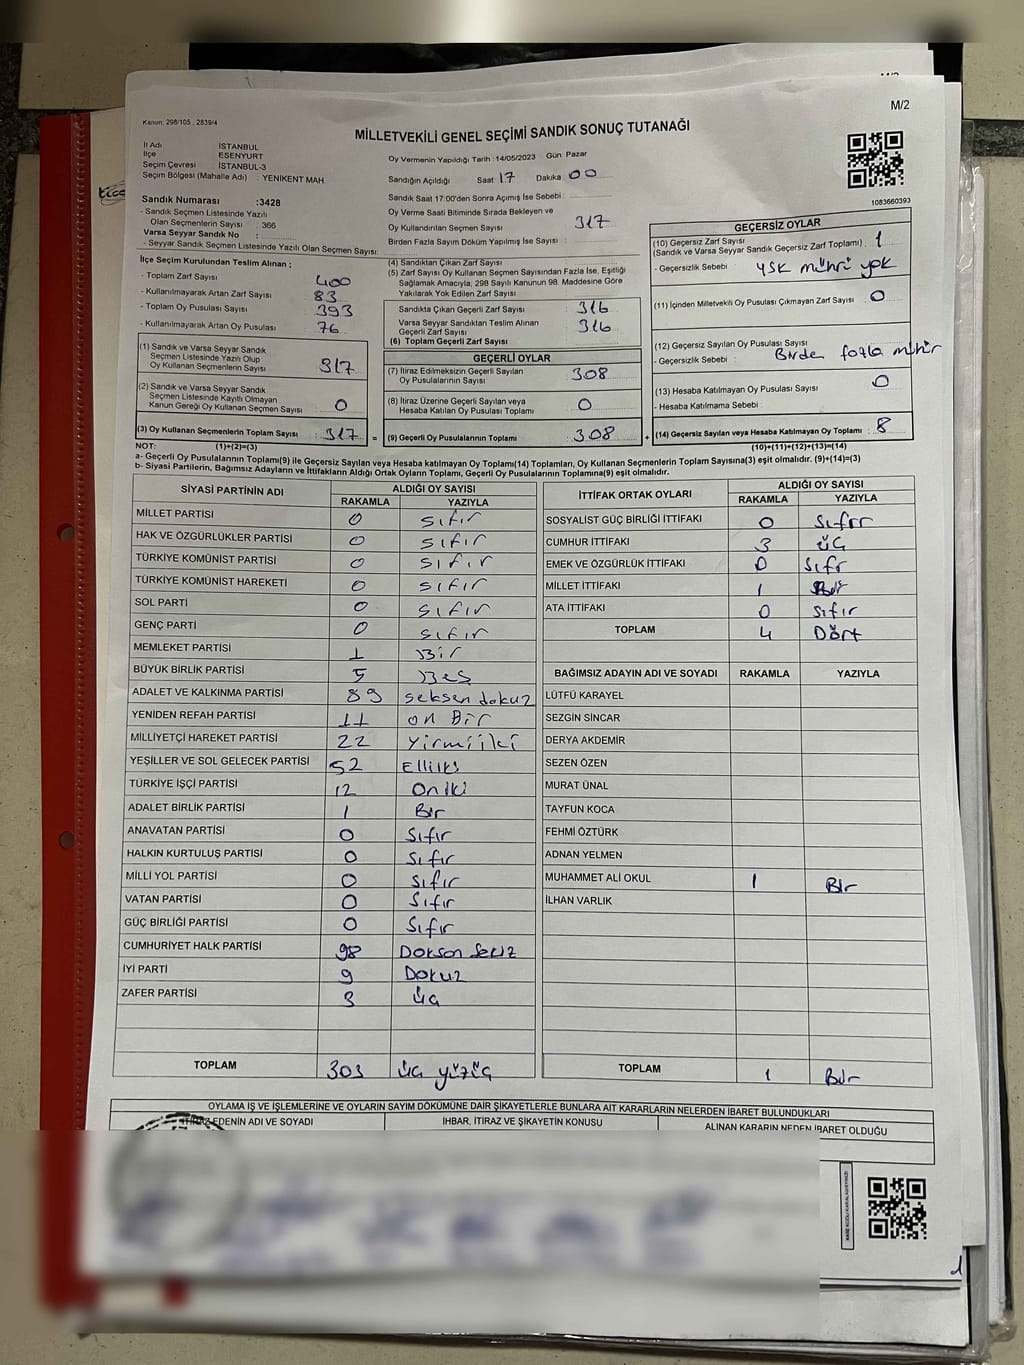 M/2
M/2
Kanun, 298/105 , 2839/4
MİLLETVEKİLİ GENEL SEÇİMİ SANDIK SONUÇ TUTANAĞI
İl Adı İSTANBUL
İlçe ESENYURT
Seçim Çevresi İSTANBUL-3
Seçim Bölgesi (Mahalle Adı) : YENİKENT MAH.
Oy Vermenin Yapıldığı Tarih : 14/05/2023 Gün: Pazar
Sandığın Açıldığı Saat 17 Dakika 00
Sandık Saat 17:00'den Sonra Açılmış İse Sebebi :
Oy Verme Saati Bitiminde Sırada Bekleyen ve
Oy Kullandırılan Seçmen Sayısı : 317
Birden Fazla Sayım Döküm Yapılmış İse Sayısı :
1083660393
Sandık Numarası :3428
- Sandık Seçmen Listesinde Yazılı
Olan Seçmenlerin Sayısı : 366
Varsa Seyyar Sandık No :
- Seyyar Sandık Seçmen Listesinde Yazılı Olan Seçmen Sayısı:
İlçe Seçim Kurulundan Teslim Alınan ;
- Toplam Zarf Sayısı : 400
- Kullanılmayarak Artan Zarf Sayısı : 83
- Toplam Oy Pusulası Sayısı : 393
- Kullanılmayarak Artan Oy Pusulası : 76
(1) Sandık ve Varsa Seyyar Sandık
Seçmen Listesinde Yazılı Olup
Oy Kullanan Seçmenlerin Sayısı : 317
(2) Sandık ve Varsa Seyyar Sandık
Seçmen Listesinde Kayıtlı Olmayan
Kanun Gereği Oy Kullanan Seçmen Sayısı : 0
(3) Oy Kullanan Seçmenlerin Toplam Sayısı : 317
(1)+(2)=(3)
(4) Sandıktan Çıkan Zarf Sayısı :
(5) Zarf Sayısı Oy Kullanan Seçmen Sayısından Fazla İse, Eşitliği
Sağlamak Amacıyla, 298 Sayılı Kanunun 98. Maddesine Göre
Yakılarak Yok Edilen Zarf Sayısı :
Sandıkta Çıkan Geçerli Zarf Sayısı : 316
Varsa Seyyar Sandıktan Teslim Alınan
Geçerli Zarf Sayısı : 316
(6) Toplam Geçerli Zarf Sayısı :
GEÇERLİ OYLAR
(7) İtiraz Edilmeksizin Geçerli Sayılan
Oy Pusulalarının Sayısı : 308
(8) İtiraz Üzerine Geçerli Sayılan veya
Hesaba Katılan Oy Pusulası Toplamı : 0
= (9) Geçerli Oy Pusulalarının Toplamı : 308
GEÇERSİZ OYLAR
(10) Geçersiz Zarf Sayısı
(Sandık ve Varsa Seyyar Sandık Geçersiz Zarf Toplamı) : 1
- Geçersizlik Sebebi : YSK mührü yok
(11) İçinden Milletvekili Oy Pusulası Çıkmayan Zarf Sayısı : 0
(12) Geçersiz Sayılan Oy Pusulası Sayısı :
- Geçersizlik Sebebi : Birden fazla mühür
(13) Hesaba Katılmayan Oy Pusulası Sayısı : 0
- Hesaba Katılmama Sebebi :
+ (14) Geçersiz Sayılan veya Hesaba Katılmayan Oy Toplamı : 8
(10)+(11)+(12)+(13)=(14)
NOT:
a- Geçerli Oy Pusulalarının Toplamı(9) ile Geçersiz Sayılan veya Hesaba katılmayan Oy Toplamı(14) Toplamları, Oy Kullanan Seçmenlerin Toplam Sayısına(3) eşit olmalıdır. (9)+(14)=(3)
b- Siyasi Partilerin, Bağımsız Adayların ve İttifakların Aldığı Ortak Oyların Toplamı, Geçerli Oy Pusulalarının Toplamına(9) eşit olmalıdır.
SİYASİ PARTİNİN ADI ALDIĞI OY SAYISI
RAKAMLA YAZIYLA
MİLLET PARTİSİ 0 sıfır
HAK VE ÖZGÜRLÜKLER PARTİSİ 0 sıfır
TÜRKİYE KOMÜNİST PARTİSİ 0 sıfır
TÜRKİYE KOMÜNİST HAREKETİ 0 sıfır
SOL PARTİ 0 sıfır
GENÇ PARTİ 0 sıfır
MEMLEKET PARTİSİ 1 Bir
BÜYÜK BİRLİK PARTİSİ 5 Beş
ADALET VE KALKINMA PARTİSİ 89 seksen dokuz
YENİDEN REFAH PARTİSİ 11 on Bir
MİLLİYETÇİ HAREKET PARTİSİ 22 yirmiiki
YEŞİLLER VE SOL GELECEK PARTİSİ 52 Elliiki
TÜRKİYE İŞÇİ PARTİSİ 12 Oniki
ADALET BİRLİK PARTİSİ 1 Bir
ANAVATAN PARTİSİ 0 Sıfır
HALKIN KURTULUŞ PARTİSİ 0 Sıfır
MİLLİ YOL PARTİSİ 0 Sıfır
VATAN PARTİSİ 0 Sıfır
GÜÇ BİRLİĞİ PARTİSİ 0 Sıfır
CUMHURİYET HALK PARTİSİ 98 Doksan Sekiz
İYİ PARTİ 9 Dokuz
ZAFER PARTİSİ 3 üç
TOPLAM 303 üç yüzüç
İTTİFAK ORTAK OYLARI ALDIĞI OY SAYISI
RAKAMLA YAZIYLA
SOSYALİST GÜÇ BİRLİĞİ İTTİFAKI 0 Sıfır
CUMHUR İTTİFAKI 3 üç
EMEK VE ÖZGÜRLÜK İTTİFAKI 0 Sıfır
MİLLET İTTİFAKI 1 Bir
ATA İTTİFAKI 0 Sıfır
TOPLAM 4 Dört
BAĞIMSIZ ADAYIN ADI VE SOYADI RAKAMLA YAZIYLA
LÜTFÜ KARAYEL
SEZGİN SİNCAR
DERYA AKDEMİR
SEZEN ÖZEN
MURAT ÜNAL
TAYFUN KOCA
FEHMİ ÖZTÜRK
ADNAN YELMEN
MUHAMMET ALİ OKUL 1 Bir
İLHAN VARLIK
TOPLAM 1 Bir
OYLAMA İŞ VE İŞLEMLERİNE VE OYLARIN SAYIM DÖKÜMÜNE DAİR ŞİKAYETLERLE BUNLARA AİT KARARLARIN NELERDEN İBARET BULUNDUKLARI
İTİRAZ EDENİN ADI VE SOYADI İHBAR, İTİRAZ VE ŞİKAYETİN KONUSU ALINAN KARARIN NEDEN İBARET OLDUĞU